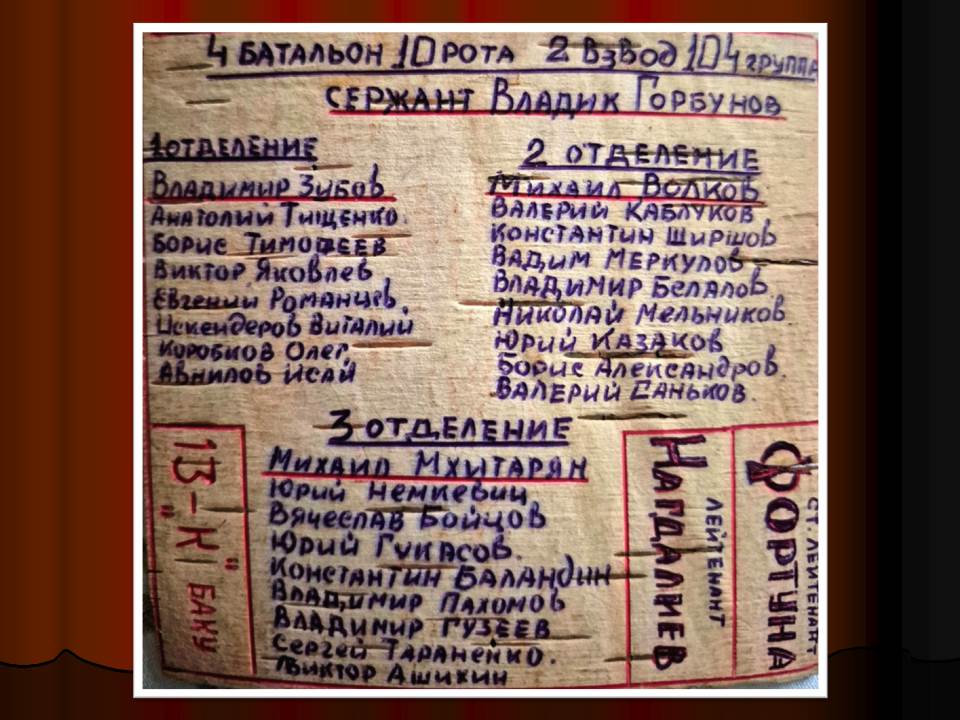 4 БАТАЛЬОН 10 РОТА 2 ВЗВОД 104 ГРУППА
СЕРЖАНТ ВЛАДИК ГОРБУНОВ
1 ОТДЕЛЕНИЕ
ВЛАДИМИР ЗУБОВ
АНАТОЛИЙ ТИЩЕНКО.
БОРИС ТИМОФЕЕВ
ВИКТОР ЯКОВЛЕВ
ЕВГЕНИЙ РОМАНЦЕВ.
ИСКЕНДЕРОВ ВИТАЛИЙ
КОРОБКОВ ОЛЕГ
АВНИЛОВ ИСАЙ
2 ОТДЕЛЕНИЕ
МИХАИЛ ВОЛКОВ
ВАЛЕРИЙ КАБЛУКОВ
КОНСТАНТИН ШИРШОВ
ВАДИМ МЕРКУЛОВ
ВЛАДИМИР БЕЛАЛОВ
НИКОЛАЙ МЕЛЬНИКОВ
ЮРИЙ КАЗАКОВ
БОРИС АЛЕКСАНДРОВ.
ВАЛЕРИЙ САНЬКОВ.
3 ОТДЕЛЕНИЕ
МИХАИЛ МХИТАРЯН
ЮРИЙ НЕМКЕВИЧ
ВЯЧЕСЛАВ БОЙЦОВ
ЮРИЙ ГУКАСОВ.
КОНСТАНТИН БАЛАНДИН
ВЛАДИМИР ПАХОМОВ
ВЛАДИМИР ГУЗЕЕВ
СЕРГЕЙ ТАРАНЕНКО.
ВИКТОР АШИХИН
13-"К" БАКУ
ЛЕЙТЕНАНТ
НАГДАЛИЕВ
СТ. ЛЕЙТЕНАНТ
ФОРТУНА